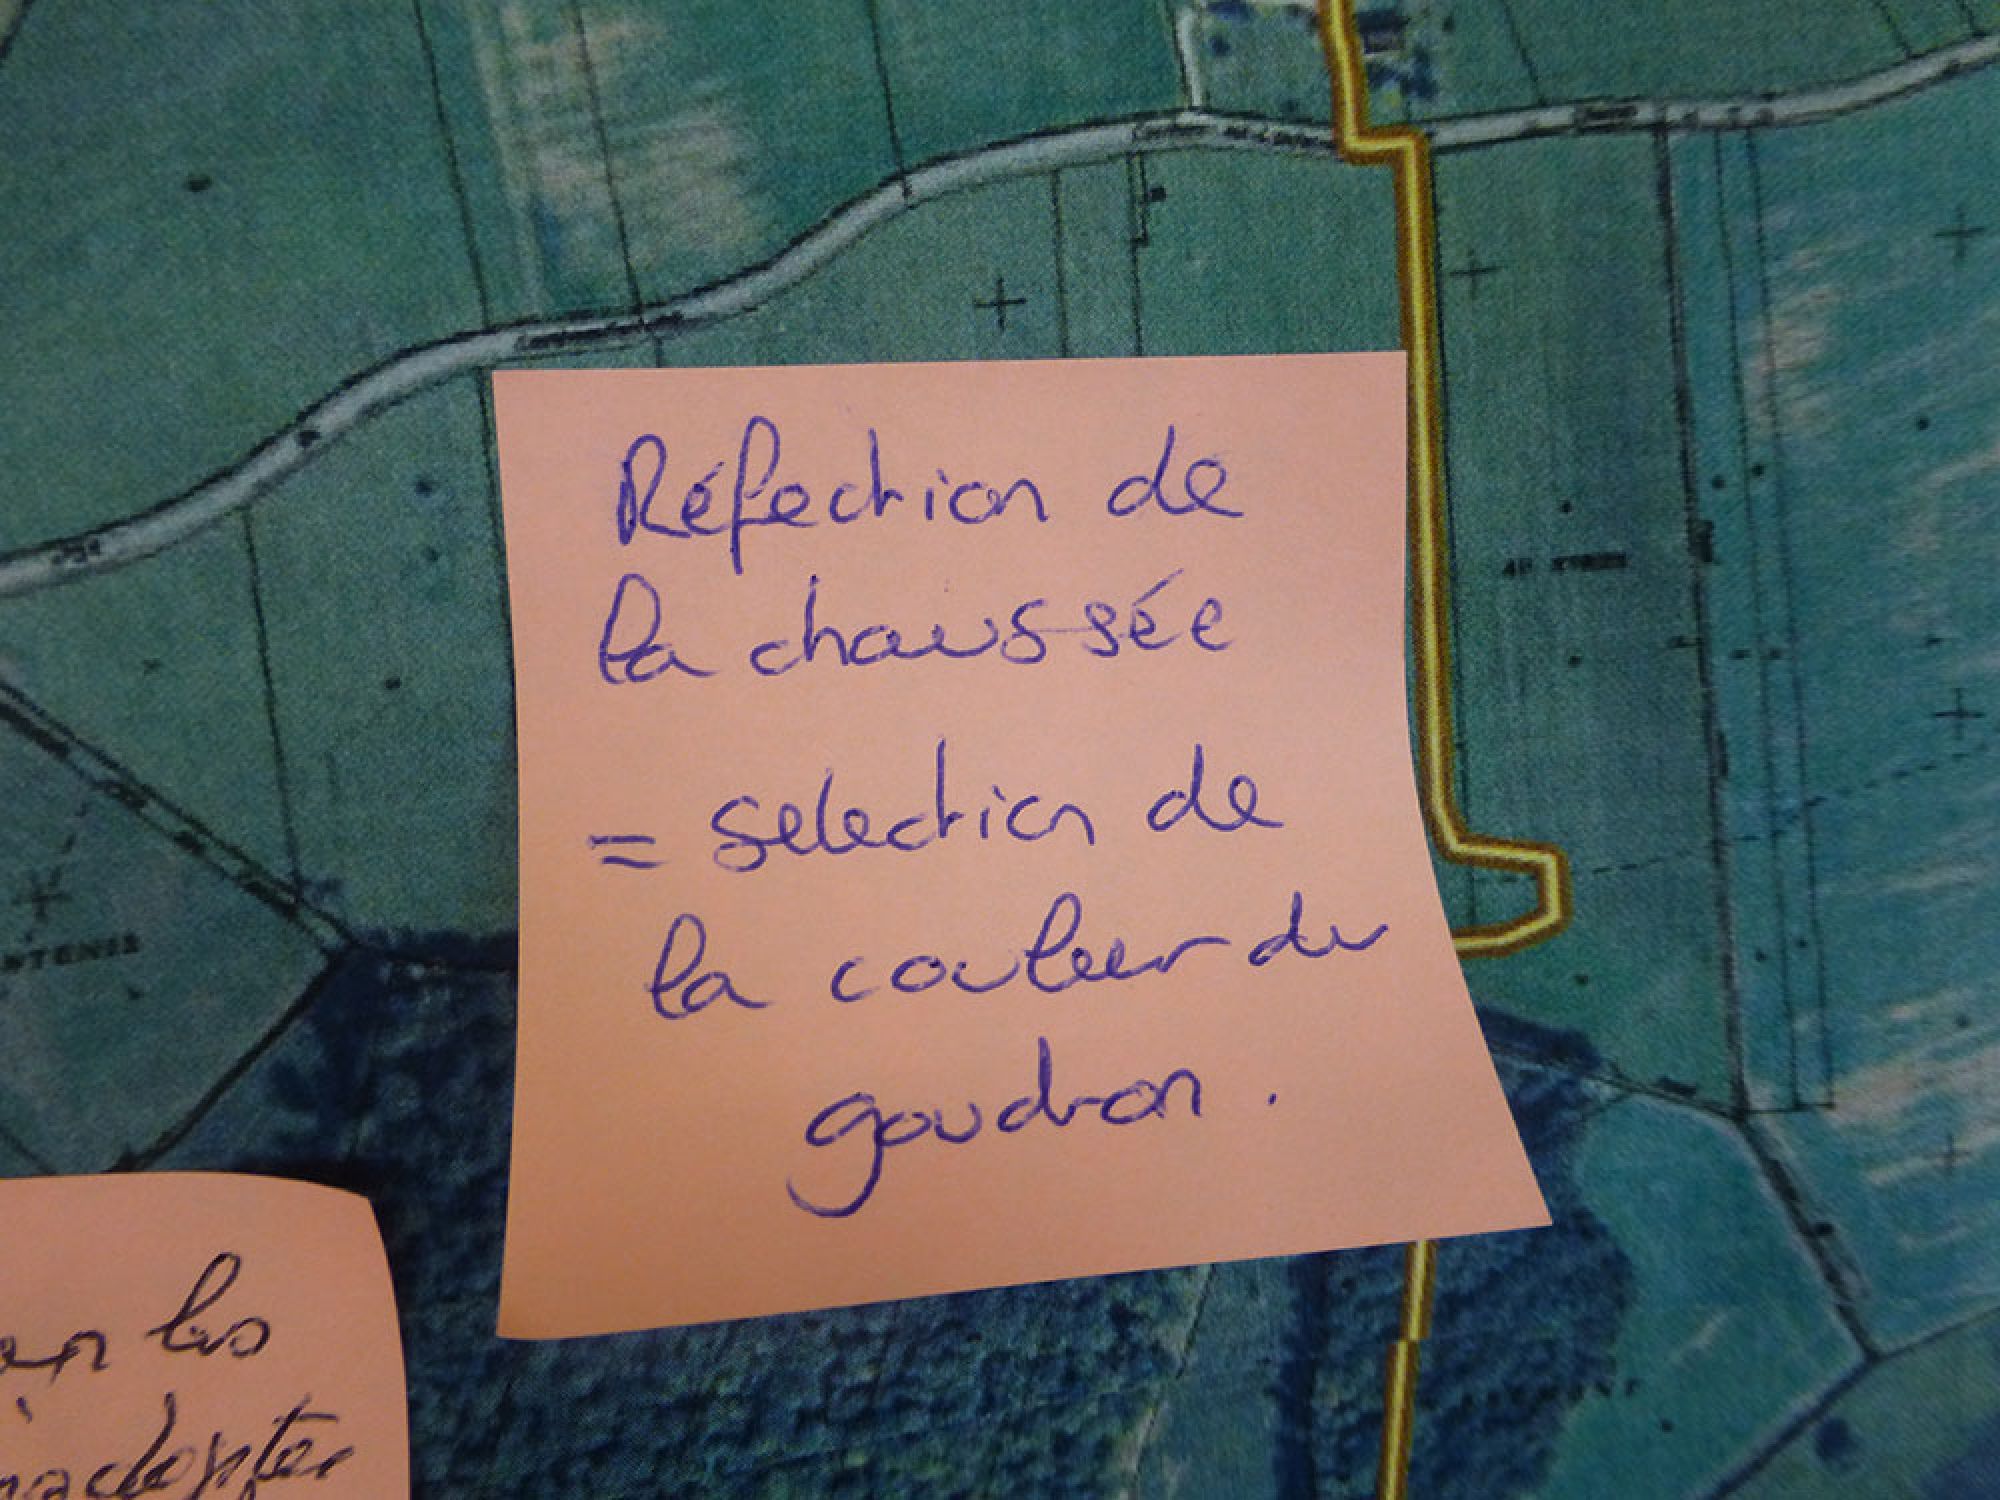 Réfection de
la chaussée
= selection de
la couleur du
goudron.
les
adopter